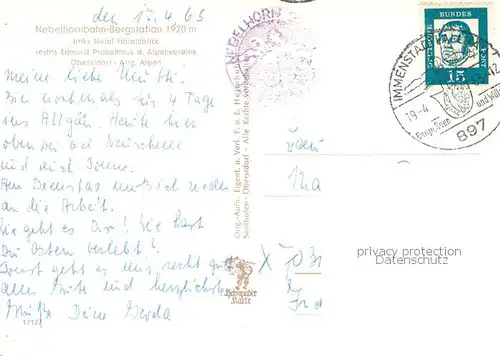 den 17.4.65
Nebelhornbahn-Bergstation 1920 m
links Hotel Höfatsblick
rechts Edmund Probsthaus d. Alpenvereins
Oberstdorf - Allg. Alpen
Meine liebe Mutti!
Bin nochmals für 4 Tage
ins Allgäu. Heute hier
oben bei Neuschnee
und Sonne.
Am Dienstag muß ich wieder
an die Arbeit.
Wie geht es Dir? Wie hast
Du Ostern verlebt?
Sonst geht es mir recht gut
alles Gute und herzlichste
Grüße Deine Gerda
17127
Orig.-Aufn. Eigent. u. Verl. F. u. E. Heimhuber
Sonthofen - Oberstdorf - Alle Rechte vorbehalten
Heimhuber
Karte
NEBELHORN
DEUTSCHE
BUNDES
POST
15
IMMENSTADT
19.-4.
Berge, Seen
und
897
Frau
X
privacy protection
Datenschutz